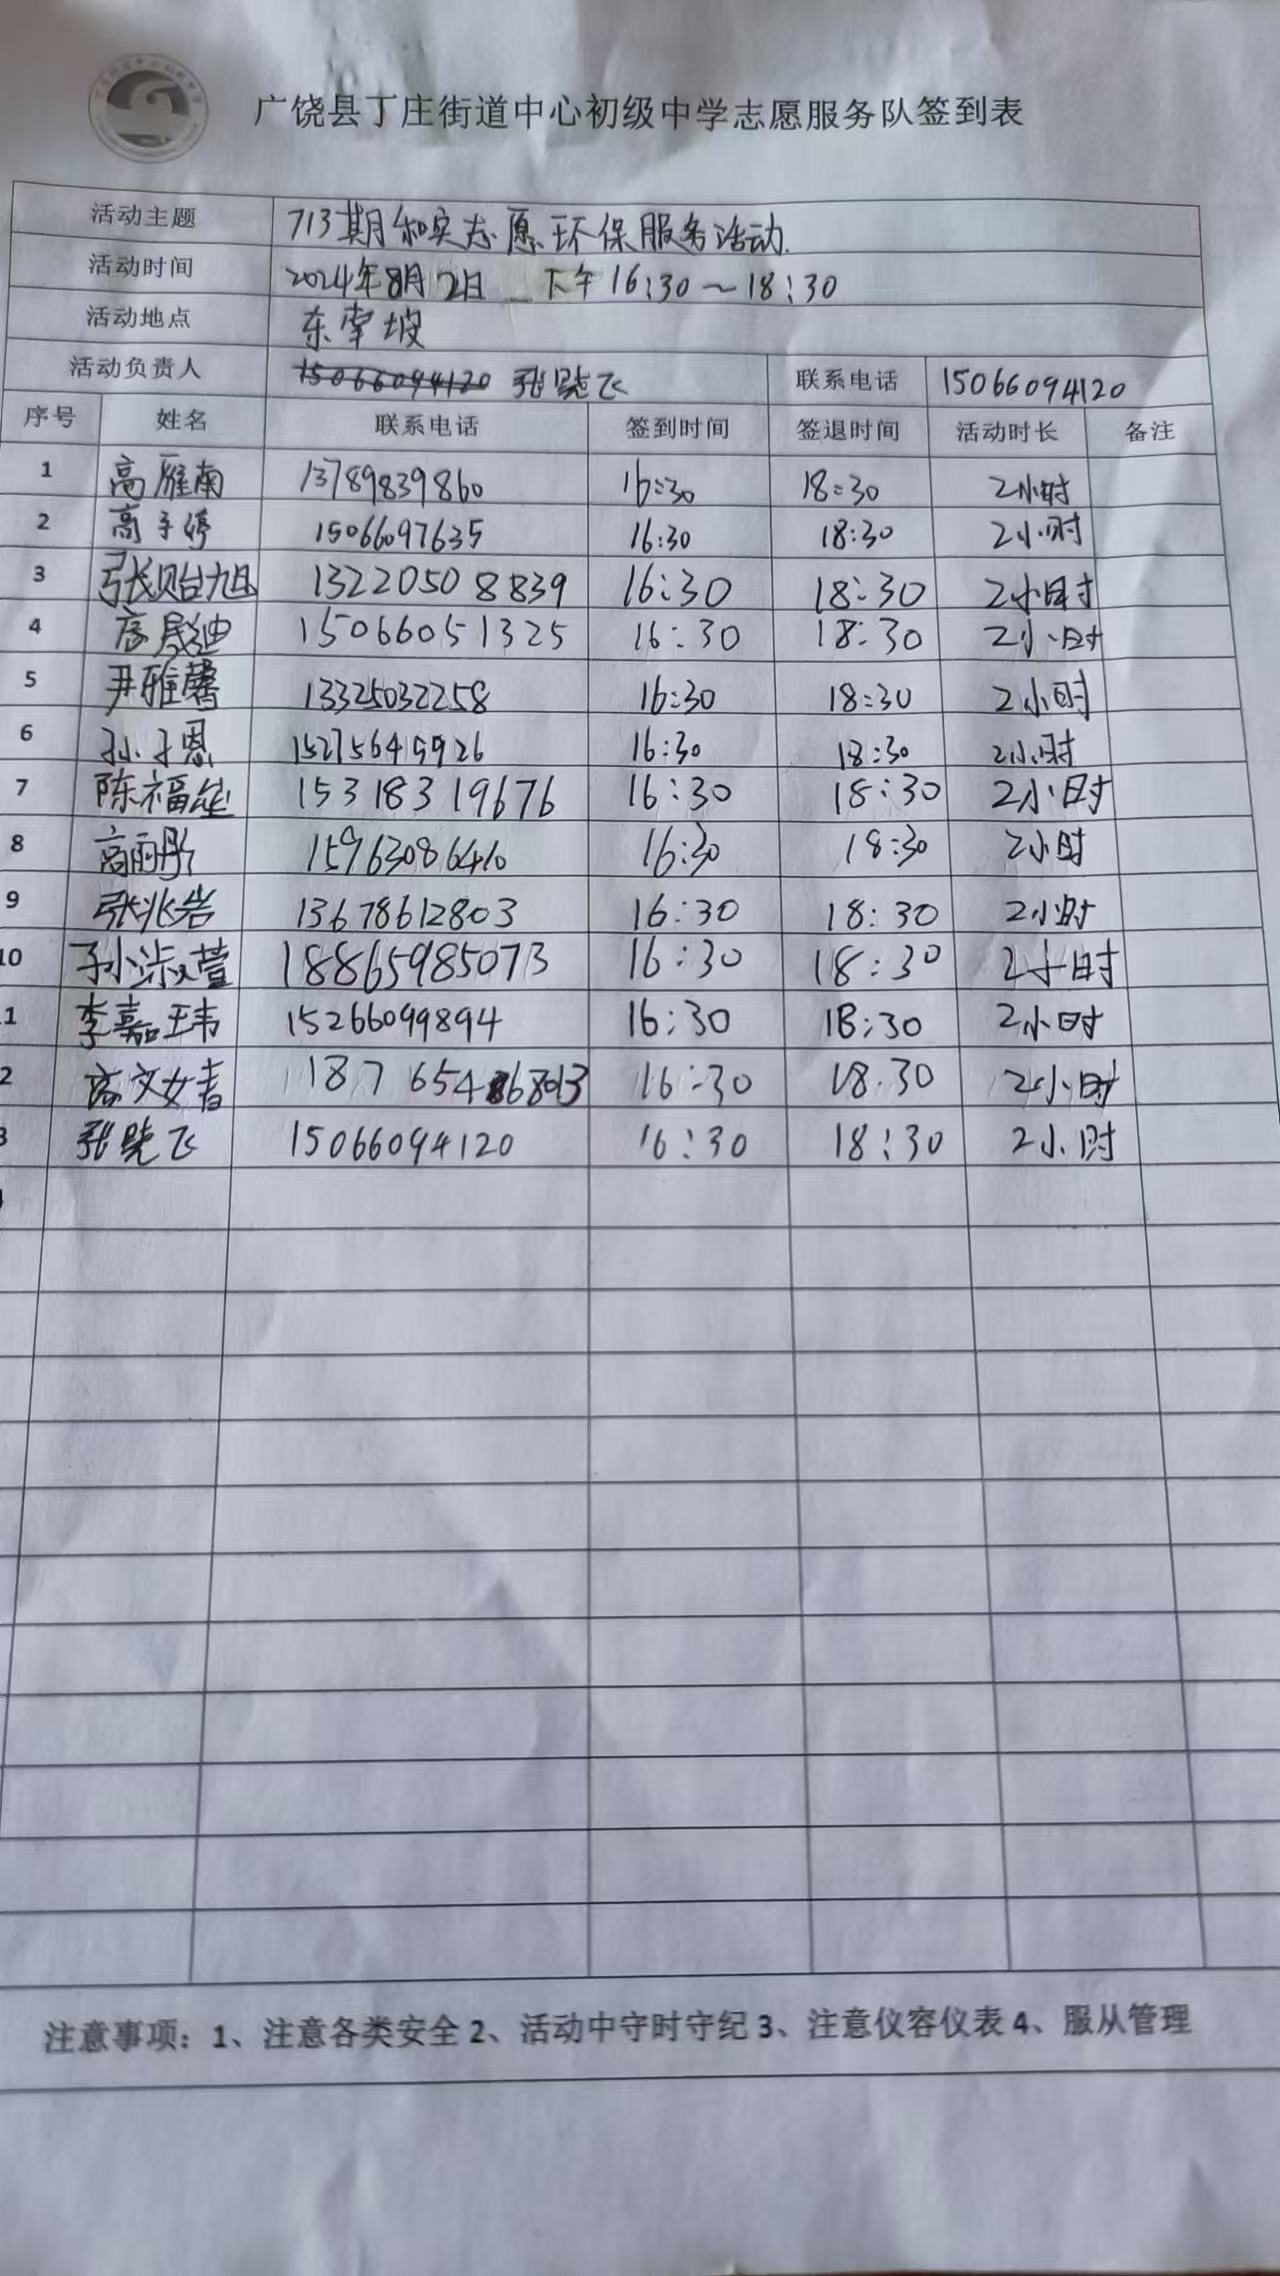 广饶县丁庄街道中心初级中学志愿服务队签到表
活动主题 713期和实志愿环保服务活动.
活动时间 2024年8月2日 下午16:30～18:30
活动地点 东常坡
活动负责人 15066094120 张晓飞 联系电话 15066094120
序号 姓名 联系电话 签到时间 签退时间 活动时长 备注
1 高雁南 13789839860 16:30 18:30 2小时
2 高子婷 15066097635 16:30 18:30 2小时
3 张贻旭 13220508839 16:30 18:30 2小时
4 15066051325 16:30 18:30 2小时
5 尹雅馨 13325032258 16:30 18:30 2小时
6 孙子恩 16:30 18:30 2小时
7 陈福垒 15318319676 16:30 18:30 2小时
8 高雨彤 15963086410 16:30 18:30 2小时
9 张兆岩 13678612803 16:30 18:30 2小时
10 孙淑萱 18865985073 16:30 18:30 2小时
1 李嘉玮 15266099894 16:30 18:30 2小时
2 高文婧 16:30 18.30 2小时
3 张晓飞 15066094120 16:30 18:30 2小时
注意事项：1、注意各类安全 2、活动中守时守纪 3、注意仪容仪表 4、服从管理